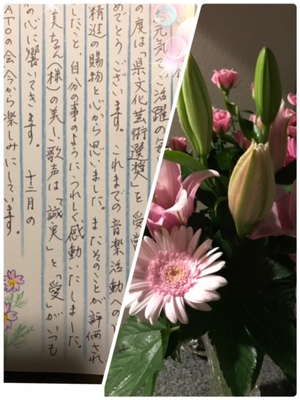 元気でご活躍の
の度は「県文化芸術選奨」を受賞
めでとうございます。これまでの音楽活動への
精進の賜物と心から思いました。またそのことが評価され
したこと、自分の事のように、うれしく感動いたしました。
美ちゃん(様)の美しい歌声は「誠実」と「愛」がいつも
の心に響いてきます。十二月の
ATOの会今から楽しみにしています。